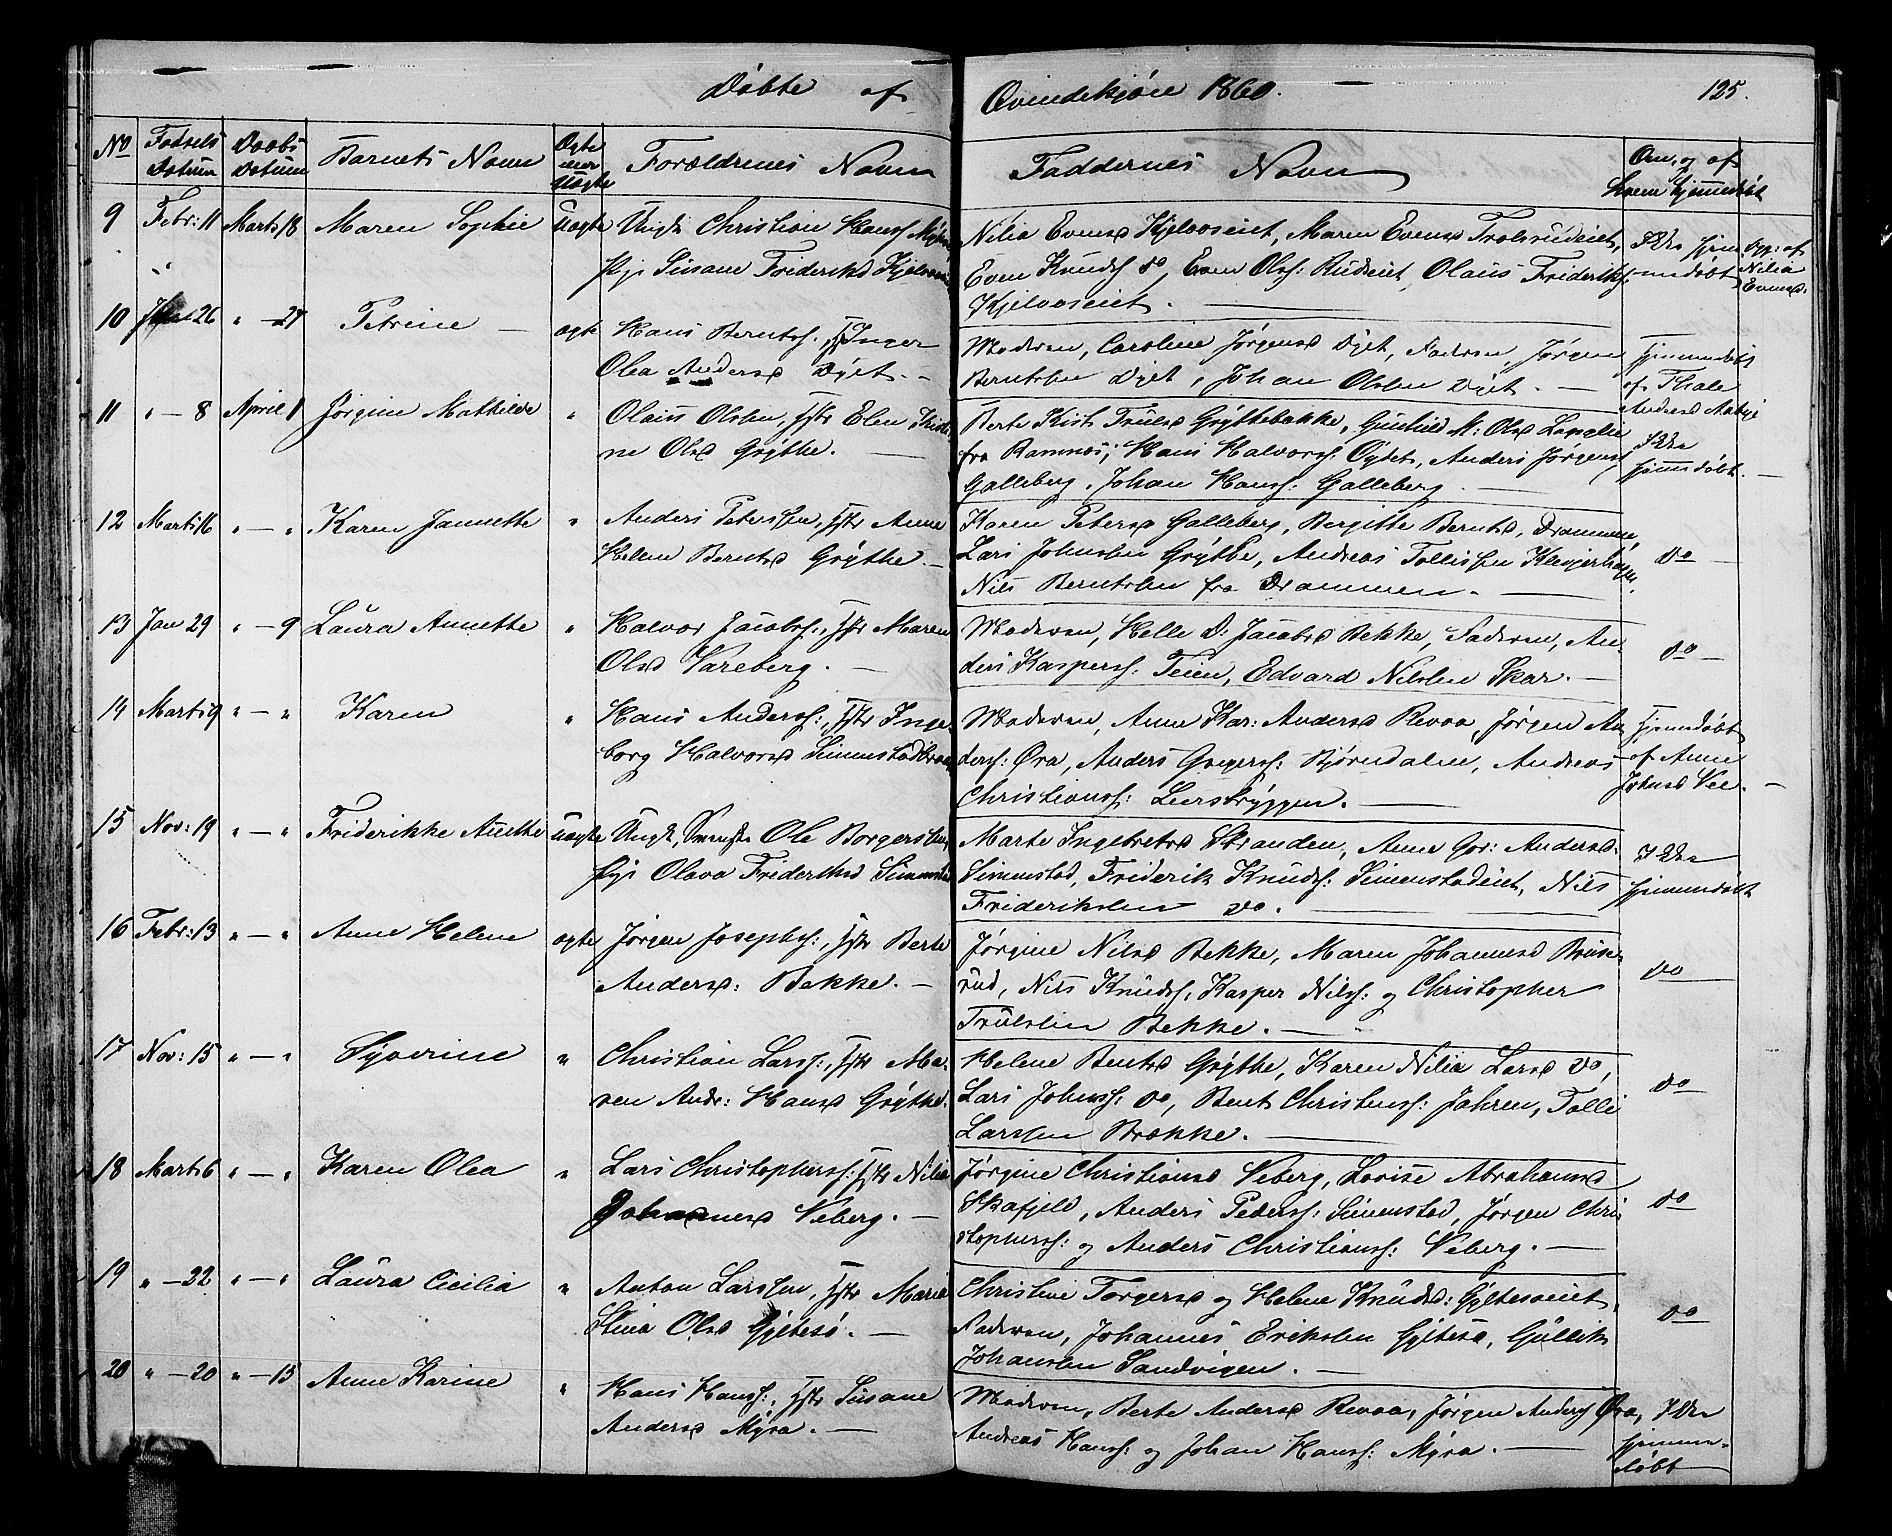 Døbte af Qvindekjøn 1860. 125.
No Fødsels Datum Daabs Datum Barnets Navn Ægte eller Uægte Forældrenes Navn Faddernes Navn Om, og af hvem hjemmedøbt
9 Febr: 11 Marts 18 Maren Sophie Uægte Ungk Christian Hanss
Pige Susane Frideriksd
Nilia Evensd Kjelaaseiet, Maren Evensd Trolsrudeiet,
Even Knuds: do, Even Olss: Rudeiet, Olaus Frideriks:
Kjelaaseiet.
Ikke hjemmedøbt
opp: af Nilia Evensd:
10 26 " - 27 Petrine ægte Hans Berntss: Hstr Inger
Olea Andersd Dyet.
Moderen, Caroline Jørgensd Dyet, Faderen Jørgen
Berntsen Dyet, Johan Olsen Dyet.
hjemmedøbt
af Thale
Andersd
11 " - 8 April 1 Jørgine Mathilde " Olaus Olsen, Hstr Elen Kristi-
ne Olsd Grythe.
Berte Kirst Trulsd Gryttebakke, Gunhild M: Olsd Langlie
fra Ramnæs, Hans Halvorss: Anders Jørgenss
Galleberg, Johan Hanss: Galleberg.
Ikke
hjemmedøbt.
12 Marts 16 " - " Karen Jannette " Anders Peterssen, Hstr Anne
Helene Berntsd Grythe.
Karen Petersd Galleberg, Birgitte Berntsd, Drammen,
Lars Johnsen Grythe, Andreas Tollissen
Nils Berntsen fra Drammen.
do
13 Jan 29 " - 9 Laura Annette " Halvor Jacobss:, Hstr Maren
Olsd Vareberg.
Moderen, Helle D: Jacobsd Bekke, Faderen, An-
ders Kasperss: Teien, Edvard Nilsen Skar.
do
14 Marts 9 " - " Karen " Hans Anderss:, Hstr Inge-
borg Halvorsd
Moderen, Anne Kar: Andersd Revaa, Jørgen An-
derss: Øra, Anders Gregerss: Bjørndalen, Andreas
Christianss: Leerskryggen.
Hjemmedøbt
af Anne
Johnsd Vee.
15 Nov: 19 " - " Friderikke Anette Uægte Ungk, Ole Borgerssen
Pige Olava Frideriksd
Marte Ingebretsd Stranden, Anne Gor: Andersd
Simenstad, Friderik Knuds: Simenstadeiet, Nils
Frideriksen do.
Ikke
hjemmedøbt
16 Febr: 13 " - " Anne Helene ægte Jørgen Josephss:, Hstr Berte
Andersd: Bekke.
Jørgine Nilsd Bekke, Maren Johannesd Bruse-
rud, Nils Knuds: Kasper Nilss: og Christopher
Trulsen Bekke.
do
17 Nov: 15 " - " Syverine " Christian Larss:, Hstr Ma-
ren Andr: Hansd Grythe.
Helene Bentsd Grythe, Karen Nilia Larsd do,
Lars Johnss: do, Bent Christenss: Jahren, Tolli
Larssen Brække.
do
18 Marts 6 " - " Karen Olea " Lars Christopherss: Hstr Nilia
Johannesd Veberg.
Jørgine Christiansd Veberg, Lovise Abrahamsd
Skafjeld, Anders Pederss: Simenstad, Jørgen Chri-
stopherss: og Anders Christianss: Veberg.
do
19 " - 22 " - " Laura Cicilia " Anton Larssen, Hstr Maren
Stina Olsd Gjltesø.
Christine Torgersd og Helene Knudsd:
Faderen, Johannes Eriksen Gjltesø, Gullik
Johansen Sandvigen.
do
20 " - 20 " - 15 Anne Karine " Hans Hanss:, Hstr Susane
Andersd Myra.
Moderen, Berte Andersd Revaa, Jørgen Anderss Øra,
Andreas Hanss: og Johan Hanss: Myra.
Ikke
hjemme-
døbt